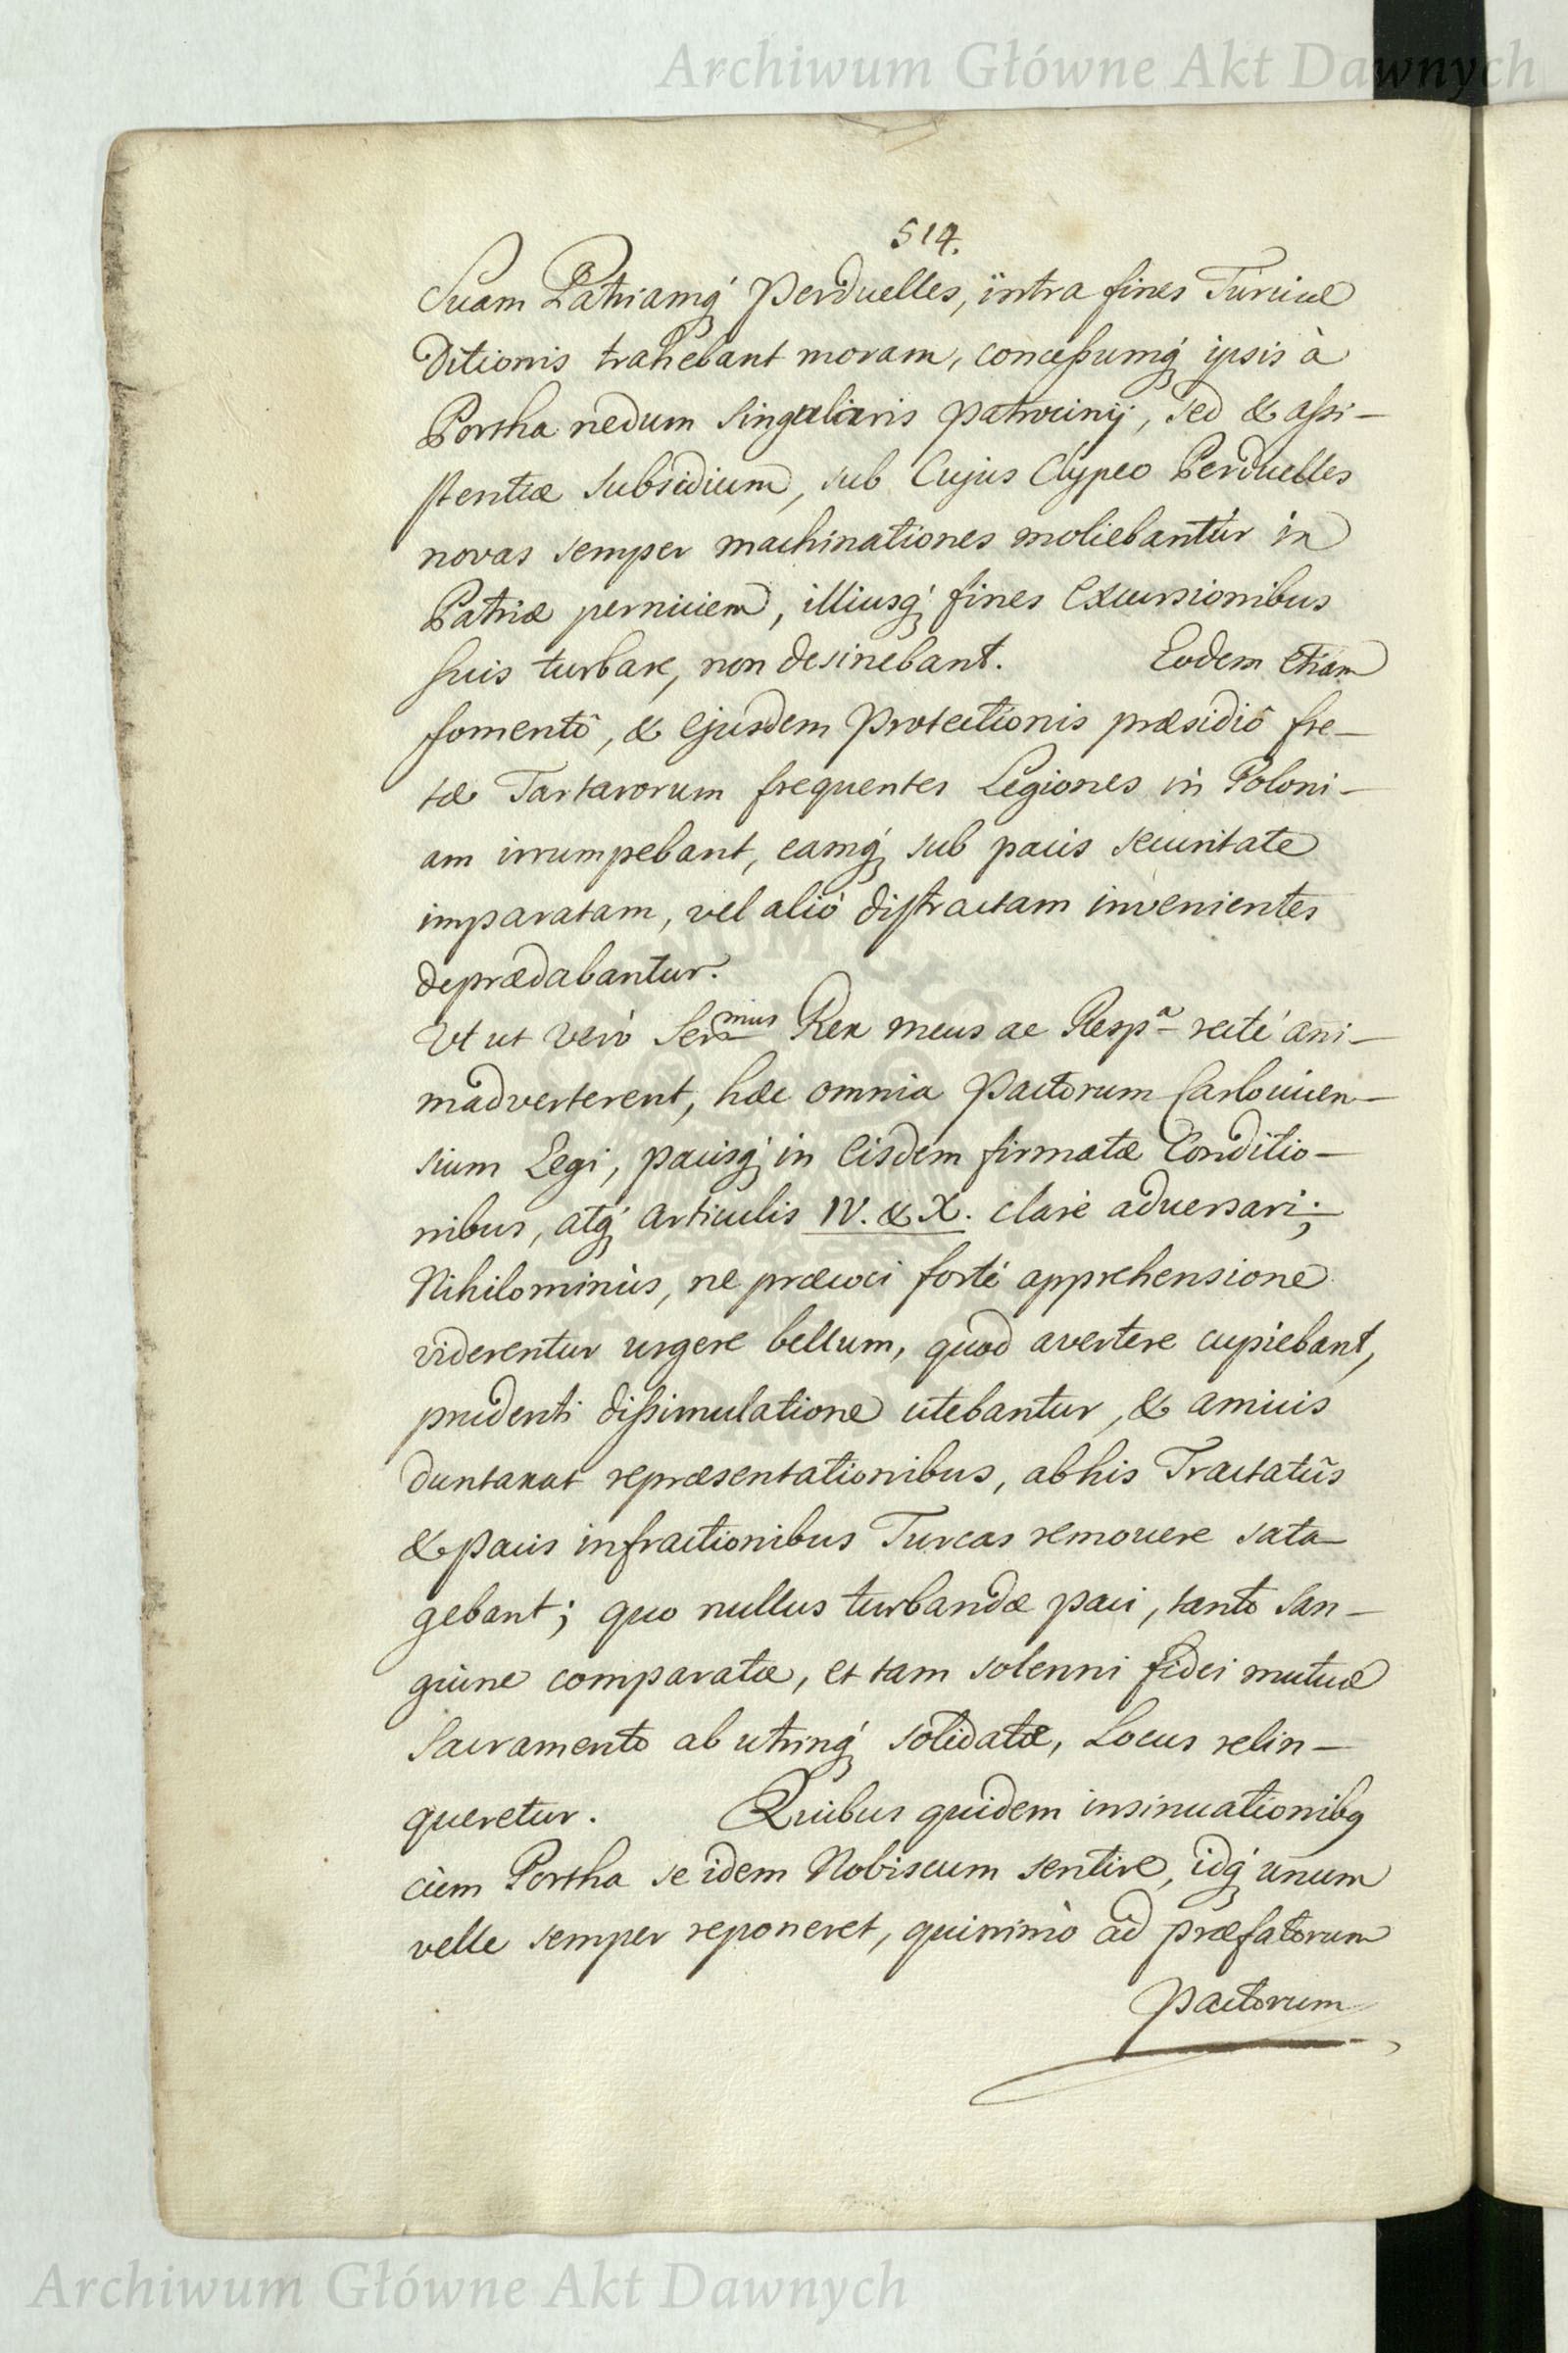 Archiwum Główne Akt Dawnych
514.
Suam Patriamq́ perduelles, intra fines Turcicæ
Ditionis trahebant moram, conceßumq́ ipsis à
Portha nedum singularis patrocinij, sed & aßi-
stentiæ subsidium, sub Cujus Clypeo Perduelles
novas semper machinationes moliebantur in
Patriæ perniciem, illiusq́ fines Excursionibus
suis turbare, non desinebant. Eodem Etiam
fomentô, & Ejusdem Protectionis præsidiô fre-
tæ Tartarorum frequentes Legiones in Poloni-
am irrumpebant, eamq́ sub pacis securitate
imparatam, vel aliò distractam invenientes
deprædabantur.
Vt ut verò Serᵐᵘˢ Rex meus ac Respᵃ rectè ani-
madverterent, hæc omnia Pactorum Carlovicen-
sium Legi, pacisq́ in Eisdem firmatæ Conditio-
nibus, atq́ Articulis IV. & X. clarè adversari;
Nihilominùs, ne præcoci fortè apprehensione
viderentur urgere bellum, quod avertere cupiebant,
prudenti dißimulatione utebantur, & amicis
duntaxat repræsentationibus, ab his Tractatûs
& pacis infractionibus Turcas removere sata-
gebant; quo nullus turbandæ paci, tanto San-
guine comparatæ, et tam solenni fidei mutuæ
Sacramento ab utrinq́ solidatæ, Locus relin-
queretur. Quibus quidem insinuationibꝯ
cùm Portha se idem Nobiscum sentire, idq́ unum
velle semper reponeret, quinimò ad præfatorum
Pactorum
Archiwum Główne Akt Dawnych